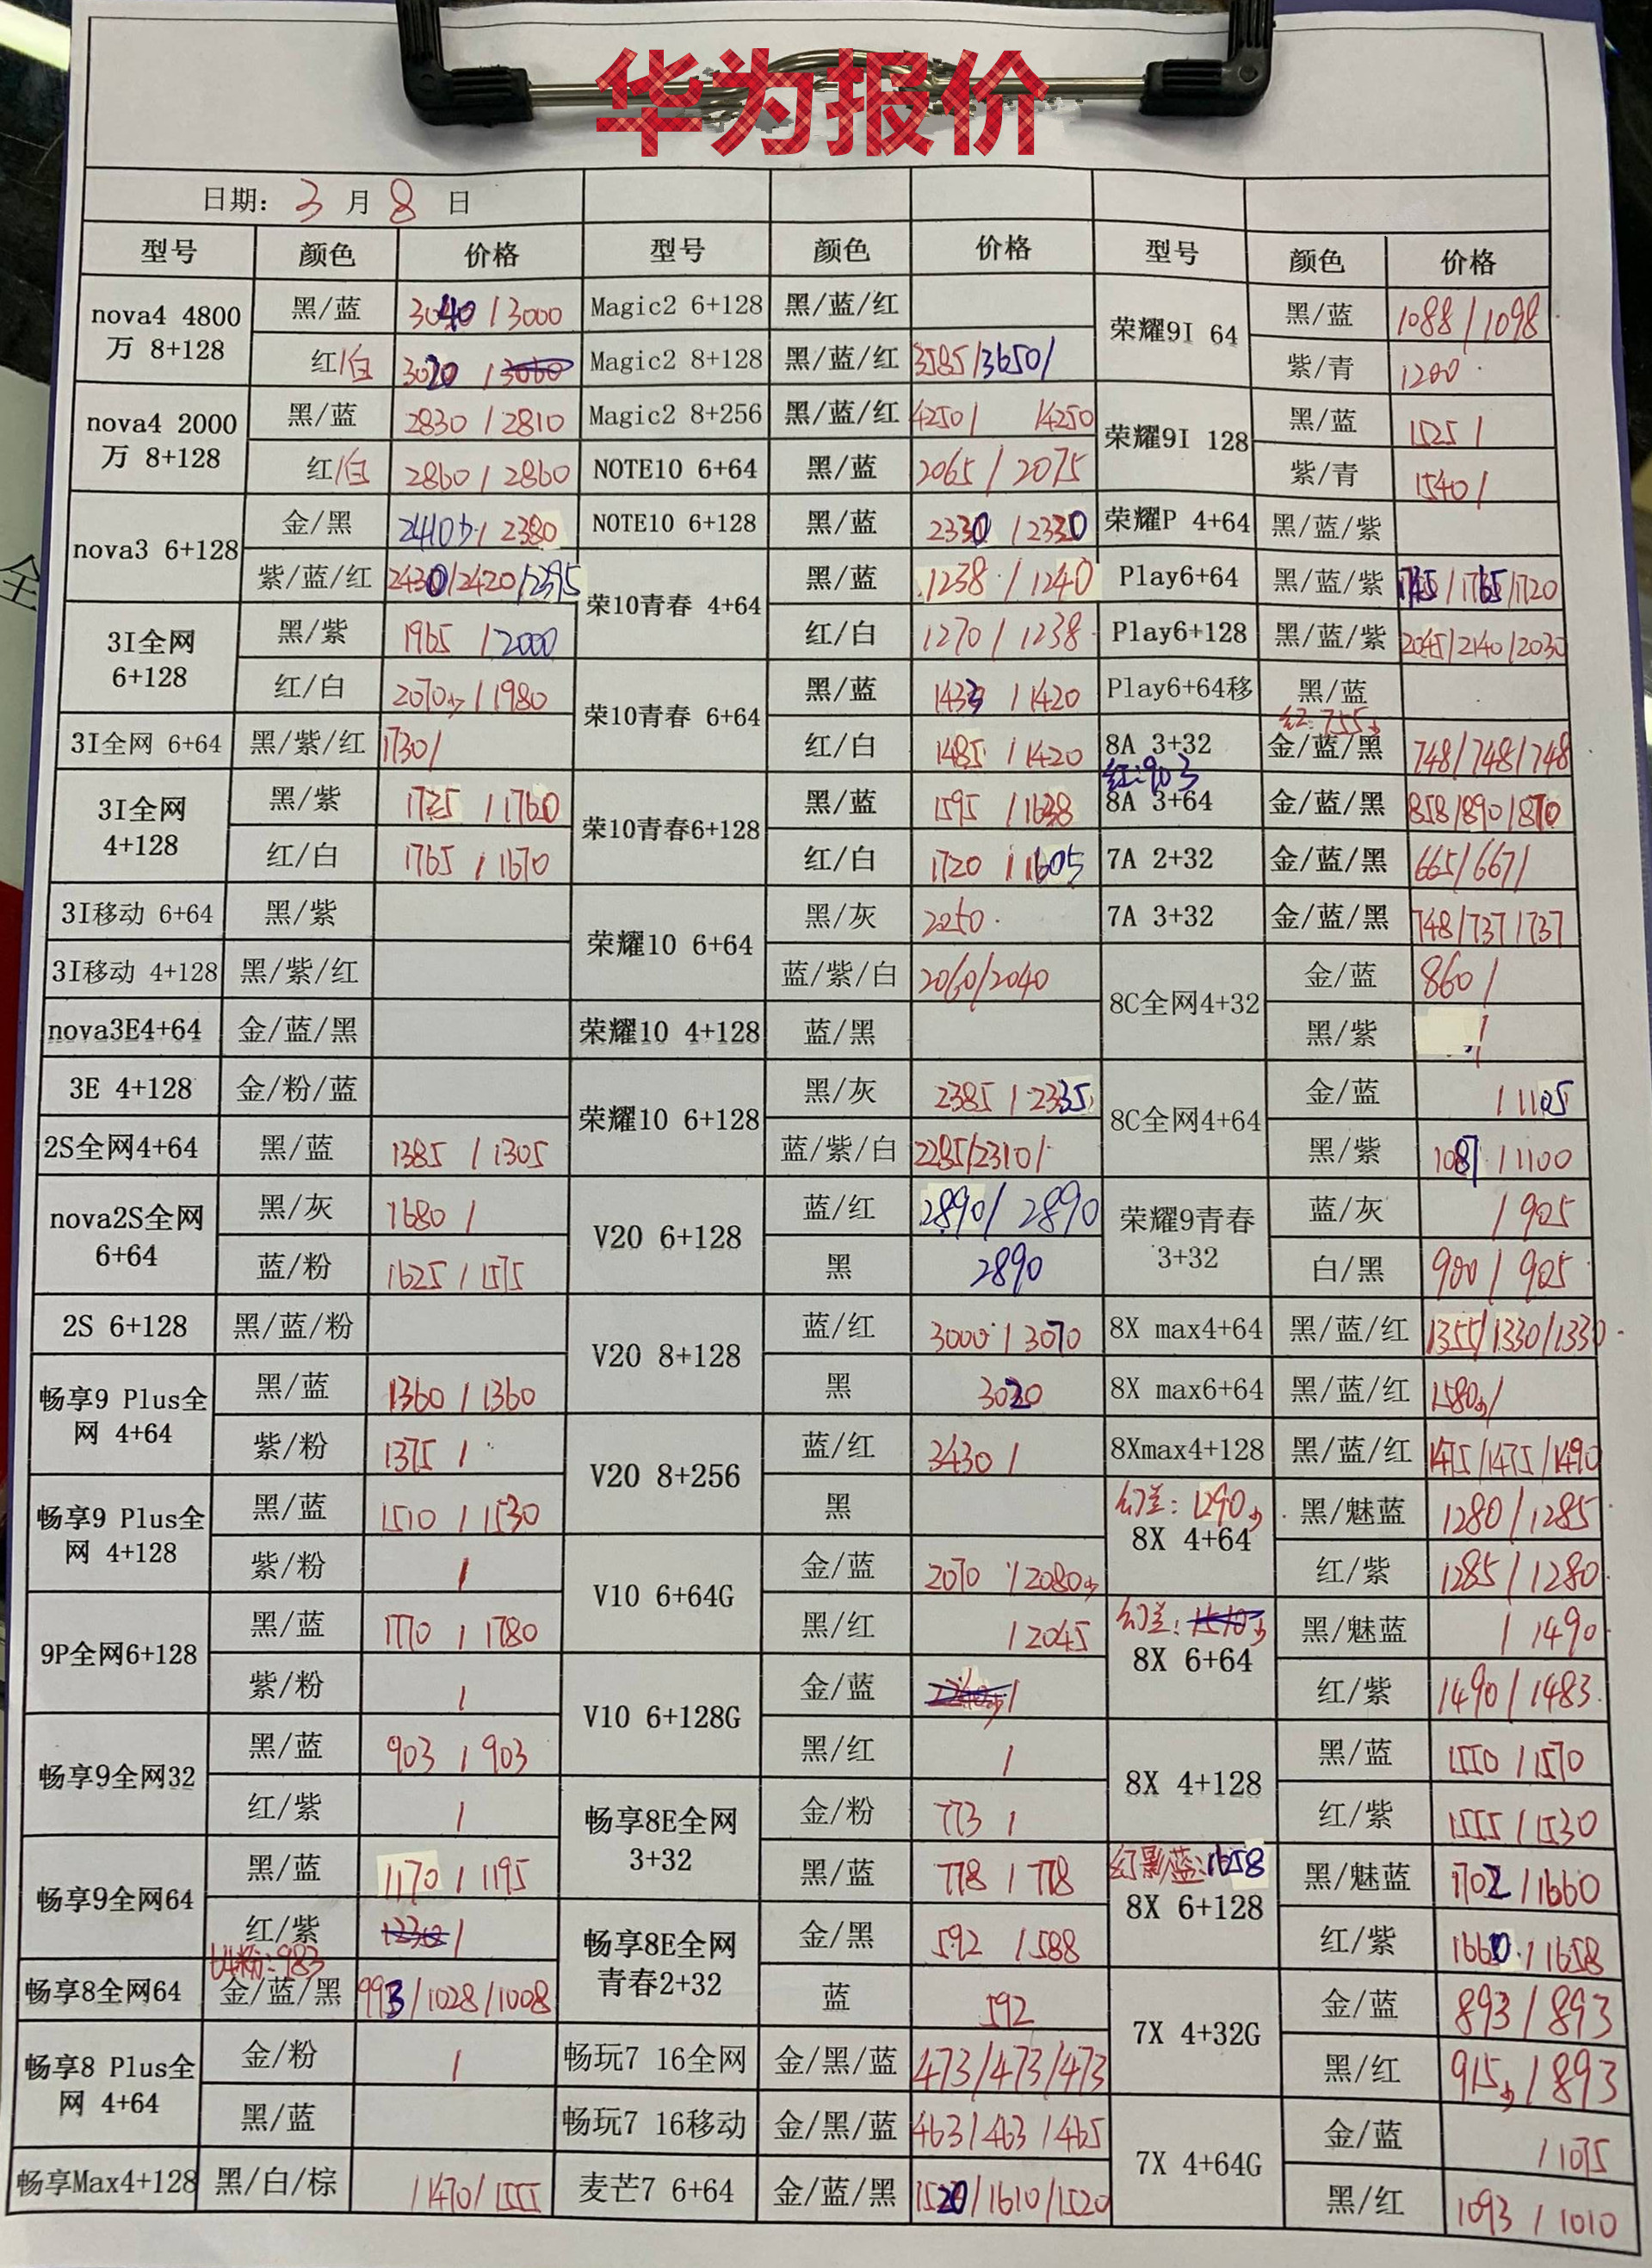 华为报价
日期: 3 月 8 日
型号 颜色 价格 型号 颜色 价格 型号 颜色 价格
nova4 4800万 8+128 黑/蓝 3040 / 3000
红/白 3020 / 3060
nova4 2000万 8+128 黑/蓝 2830 / 2810
红/白 2860 / 2860
nova3 6+128 金/黑 2410少 / 2380
紫/蓝/红 2430/2420/2395
3I全网 6+128 黑/紫 1965 / 2000
红/白 2070少 / 1980
3I全网 6+64 黑/紫/红 1730/
3I全网 4+128 黑/紫 1725 / 1760
红/白 1765 / 1670
3I移动 6+64 黑/紫
3I移动 4+128 黑/紫/红
nova3E4+64 金/蓝/黑
3E 4+128 金/粉/蓝
2S全网4+64 黑/蓝 1385 / 1305
nova2S全网 6+64 黑/灰 1680 /
蓝/粉 1625 / 1575
2S 6+128 黑/蓝/粉
畅享9 Plus全网 4+64 黑/蓝 1360 / 1360
紫/粉 1375 /
畅享9 Plus全网 4+128 黑/蓝 1510 / 1530
紫/粉 /
9P全网6+128 黑/蓝 1770 / 1780
紫/粉 /
畅享9全网32 黑/蓝 903 / 903
红/紫 /
畅享9全网64 黑/蓝 1170 / 1195
红/紫 1230 /
64粉:983
畅享8全网64 金/蓝/黑 993/1028/1008
畅享8 Plus全网 4+64 金/粉 /
黑/蓝
畅享Max4+128 黑/白/棕 / 1470 / 1555
Magic2 6+128 黑/蓝/红
Magic2 8+128 黑/蓝/红 3585/3650/
Magic2 8+256 黑/蓝/红 4250/ /4250
NOTE10 6+64 黑/蓝 2065 / 2075
NOTE10 6+128 黑/蓝 2330 / 2320
荣10青春 4+64 黑/蓝 1238 / 1240
红/白 1270 / 1238
荣10青春 6+64 黑/蓝 1433 / 1420
红/白 1485 / 1420
荣10青春6+128 黑/蓝 1595 / 1638
红/白 1720 / 1605
荣耀10 6+64 黑/灰 2050
蓝/紫/白 2060/2040
荣耀10 4+128 蓝/黑
荣耀10 6+128 黑/灰 2385 / 2335
蓝/紫/白 2285/2310/
V20 6+128 蓝/红 2890/ 2890
黑 2890
V20 8+128 蓝/红 3000 / 3070
黑 3020
V20 8+256 蓝/红 3430 /
黑
V10 6+64G 金/蓝 2070 / 2080少
黑/红 / 2045
V10 6+128G 金/蓝 /
黑/红 /
畅享8E全网 3+32 金/粉 773 /
黑/蓝 778 / 778
畅享8E全网 青春2+32 金/黑 592 / 588
蓝 592
畅玩7 16全网 金/黑/蓝 473/473/473
畅玩7 16移动 金/黑/蓝 463/463/465
麦芒7 6+64 金/蓝/黑 1520/1610/1520
荣耀9I 64 黑/蓝 1088 / 1098
紫/青 1200
荣耀9I 128 黑/蓝 1525 /
紫/青 1540 /
荣耀P 4+64 黑/蓝/紫
Play6+64 黑/蓝/紫 1745/1765/1720
Play6+128 黑/蓝/紫 2045/2140/2030
Play6+64移 黑/蓝
红:755少
8A 3+32 金/蓝/黑 748/748/748
红:903
8A 3+64 金/蓝/黑 858/890/870
7A 2+32 金/蓝/黑 665/667/
7A 3+32 金/蓝/黑 748/737/737
8C全网4+32 金/蓝 860 /
黑/紫 /
8C全网4+64 金/蓝 / 1105
黑/紫 1087 / 1100
荣耀9青春 3+32 蓝/灰 / 905
白/黑 900 / 905
8X max4+64 黑/蓝/红 1355/1330/1330
8X max6+64 黑/蓝/红 1580少/
8Xmax4+128 黑/蓝/红 1475/1475/1490
幻兰: 1290少
8X 4+64 黑/魅蓝 1280 / 1285
红/紫 1285 / 1280
幻兰: 1510少
8X 6+64 黑/魅蓝 / 1490
红/紫 1490 / 1483
8X 4+128 黑/蓝 1550 / 1570
红/紫 1555 / 1530
幻影蓝:1658
8X 6+128 黑/魅蓝 1702 / 1660
红/紫 1660 / 1658
7X 4+32G 金/蓝 893 / 893
黑/红 915少 / 893
7X 4+64G 金/蓝 / 1075
黑/红 1093 / 1010